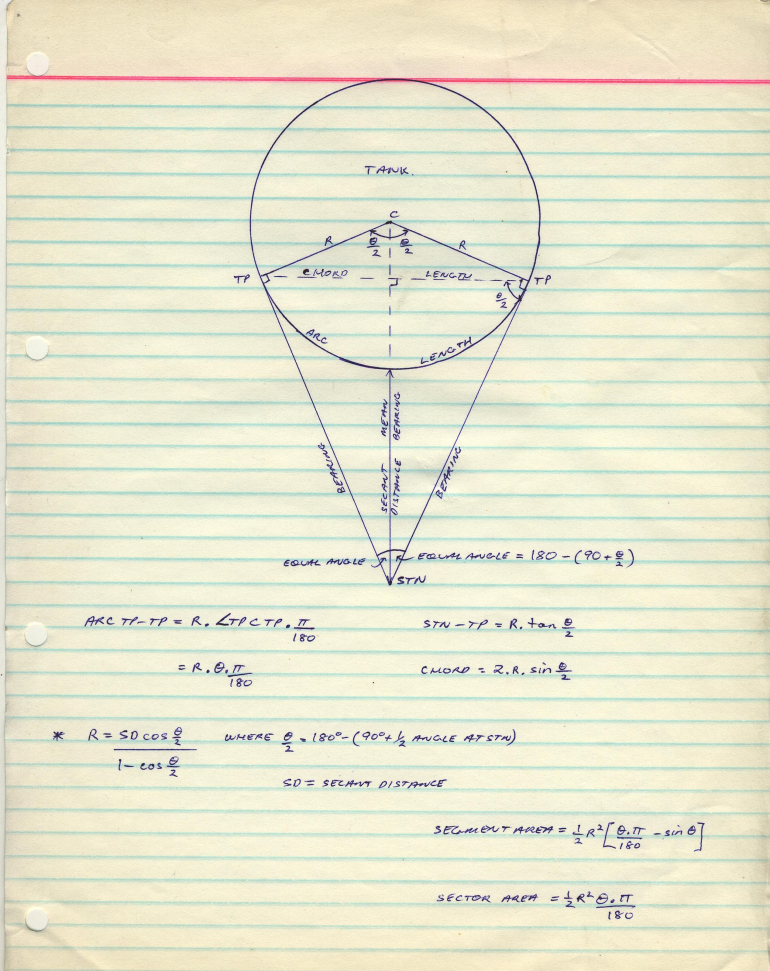 TANK.
C
R θ/2 θ/2 R
TP CHORD LENGTH TP
θ/2
ARC LENGTH
MEAN BEARING
SECANT DISTANCE
BEARING
BEARING
EQUAL ANGLE
EQUAL ANGLE = 180 - (90 + θ/2)
STN
ARC TP-TP = R. ∠TP C TP. π/180
STN - TP = R. tan θ/2
= R. θ. π/180
CHORD = 2. R. sin θ/2
* R = SD cos θ/2 / 1 - cos θ/2 WHERE θ/2 = 180° - (90° + 1/2 ANGLE AT STN)
SD = SECANT DISTANCE
SEGMENT AREA = 1/2 R² [θ.π/180 - sin θ]
SECTOR AREA = 1/2 R² θ.π/180